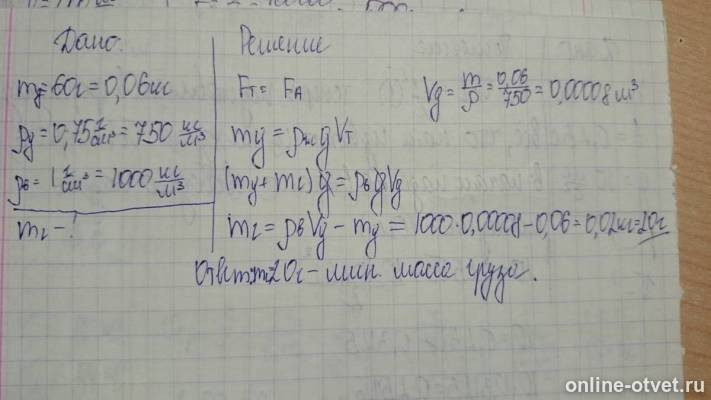 Дано:
m_g = 60г = 0,06кг
ρ_g = 0,75 г/см³ = 750 кг/м³
ρ_в = 1 г/см³ = 1000 кг/м³
m_г - ?
Решение
F_т = F_A
mg = ρ_ж g V_т
(m_g + m_г) g = ρ_в g V_g
m_г = ρ_в V_g - m_g = 1000·0,00008 - 0,06 = 0,02кг = 20г
V_g = m/ρ = 0,06/750 = 0,00008 м³
Ответ: 20г - мин. масса груза.
online-otvet.ru